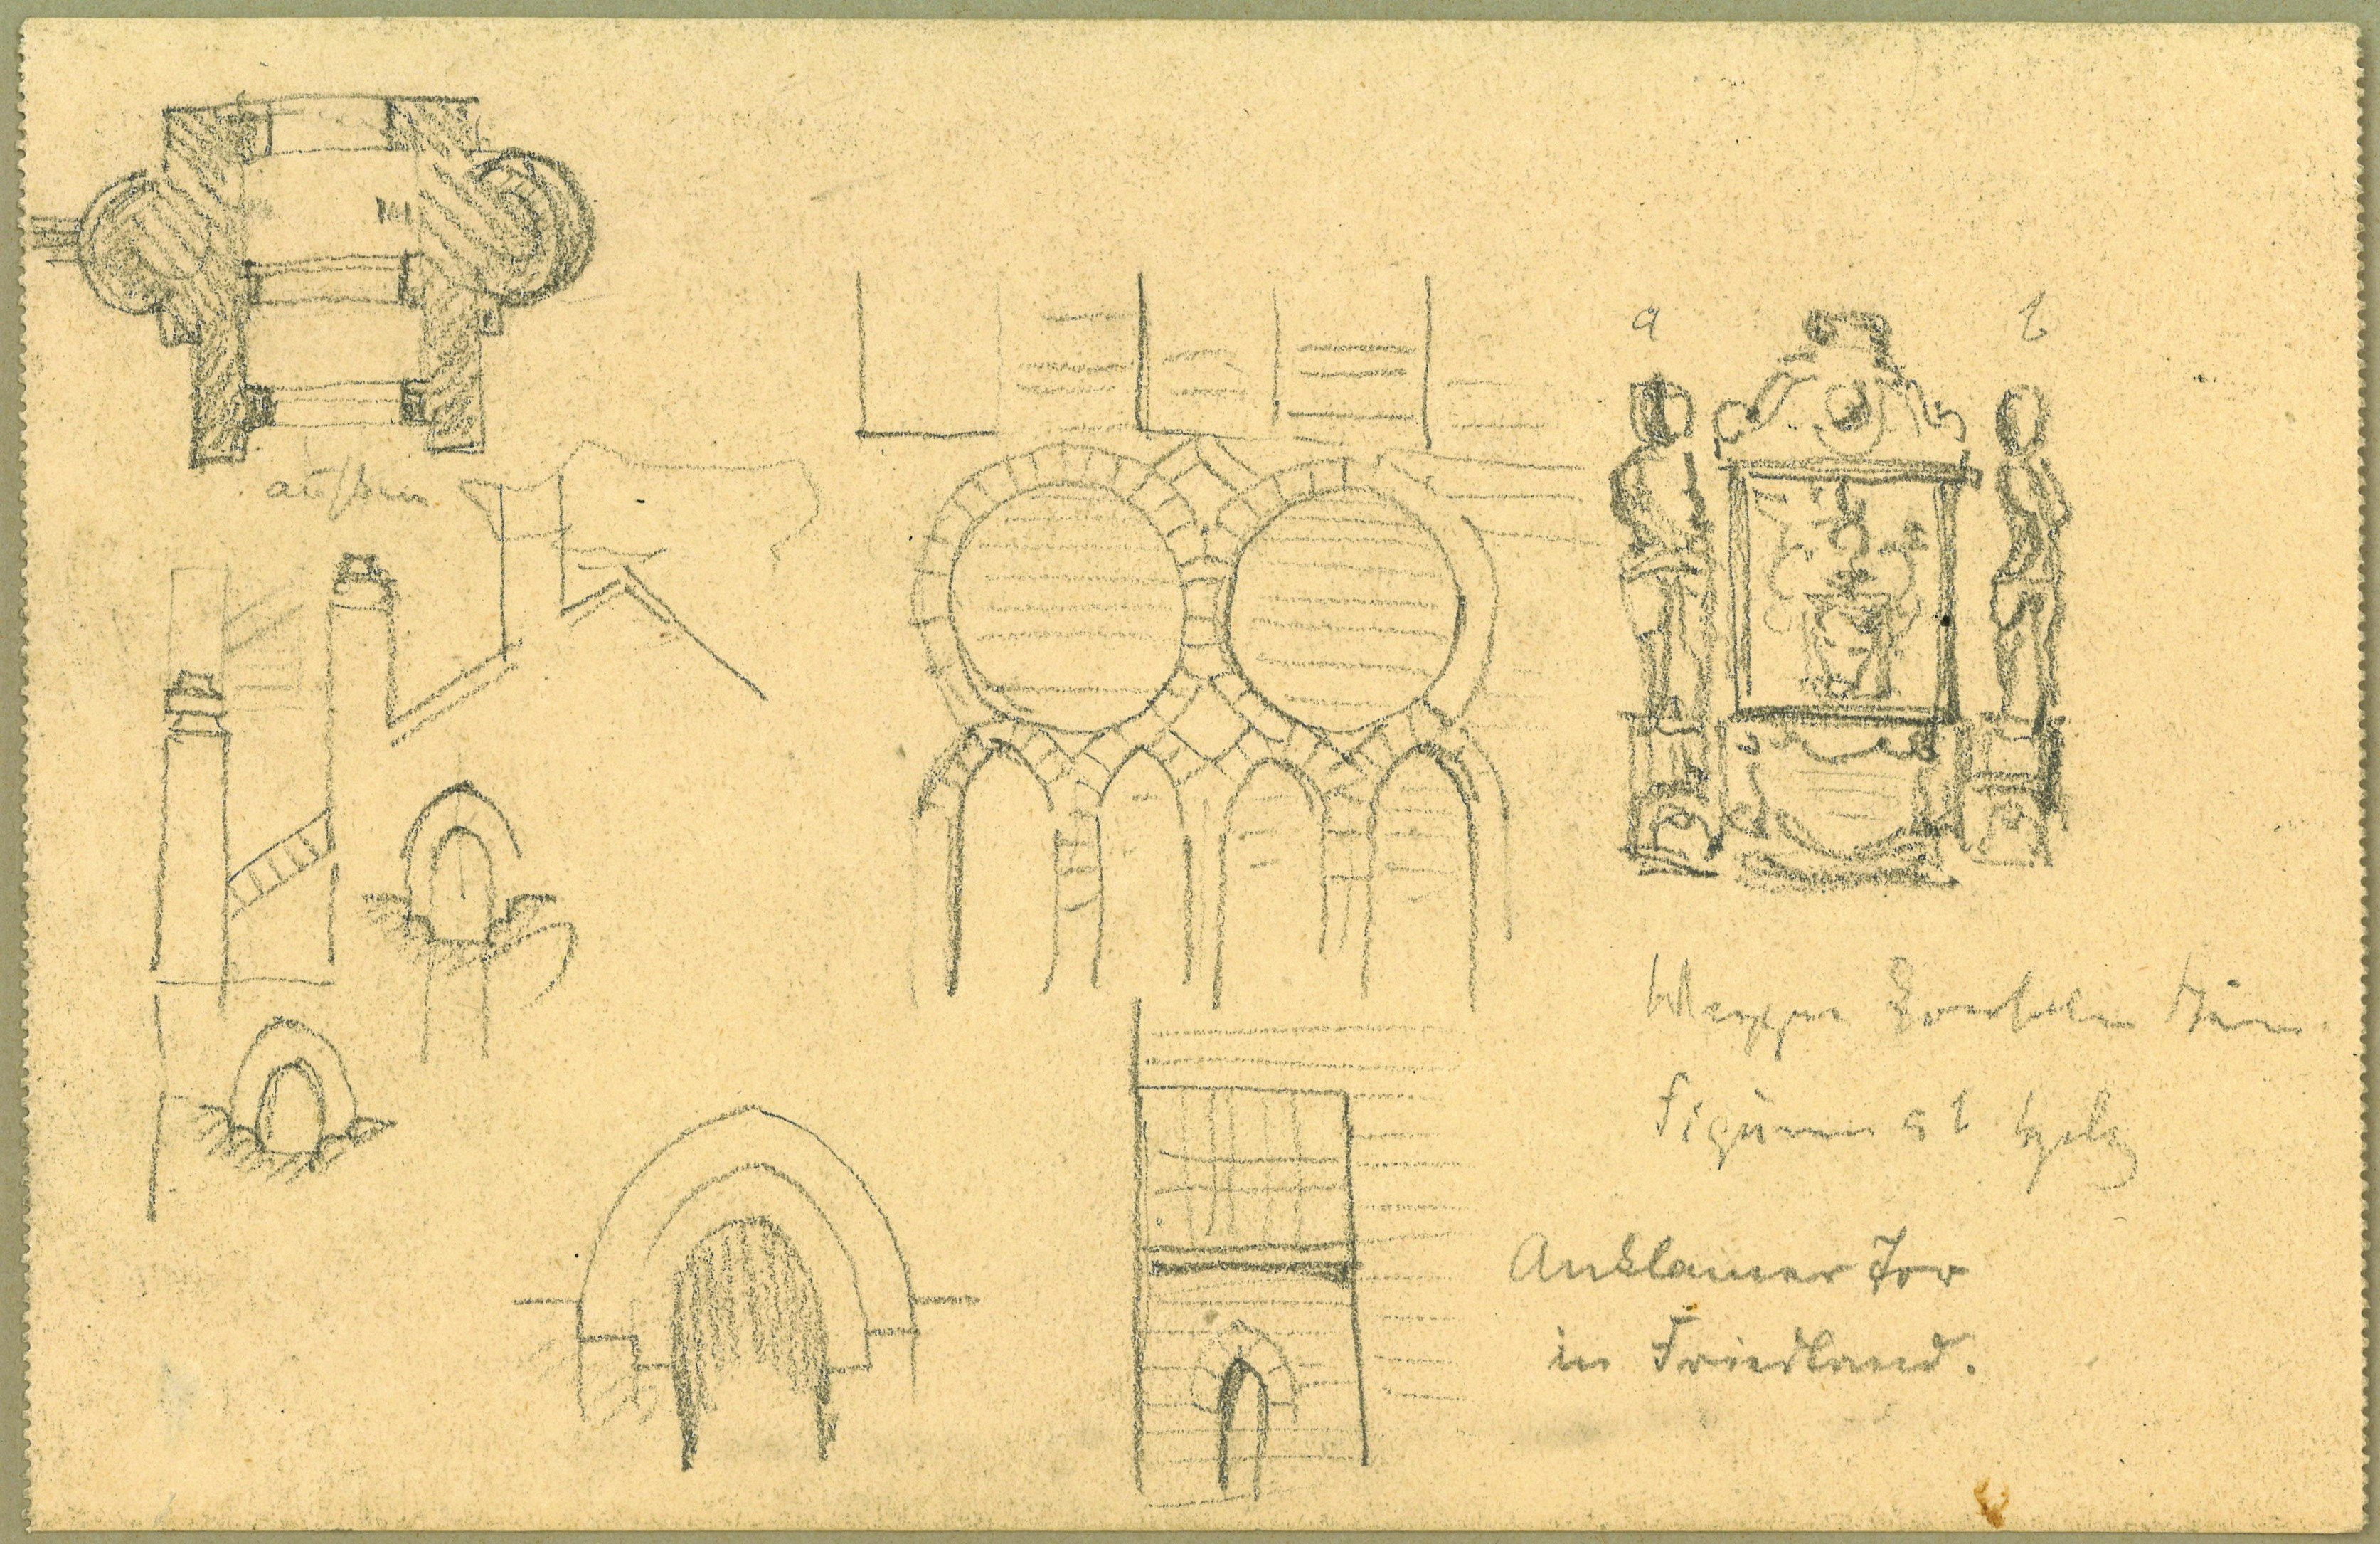 a
b
außen
Wappen
Figuren a b Holz
Anklamer Tor
in Friedland.